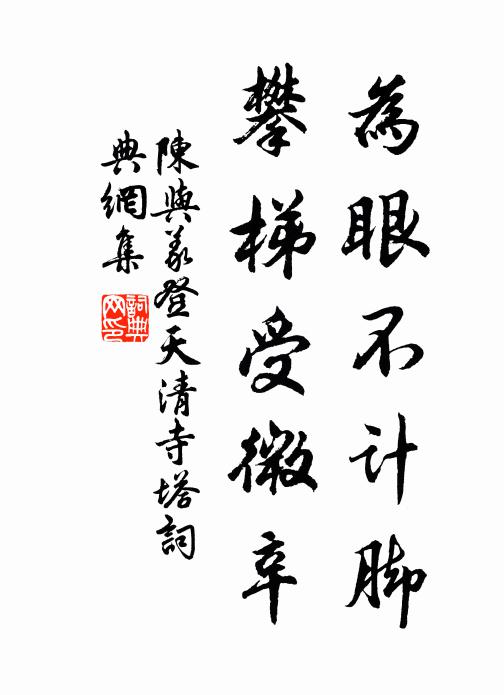 為眼不计脚
攀梯受微辛
陳與義登天清寺塔詞
典網集
詞典网印